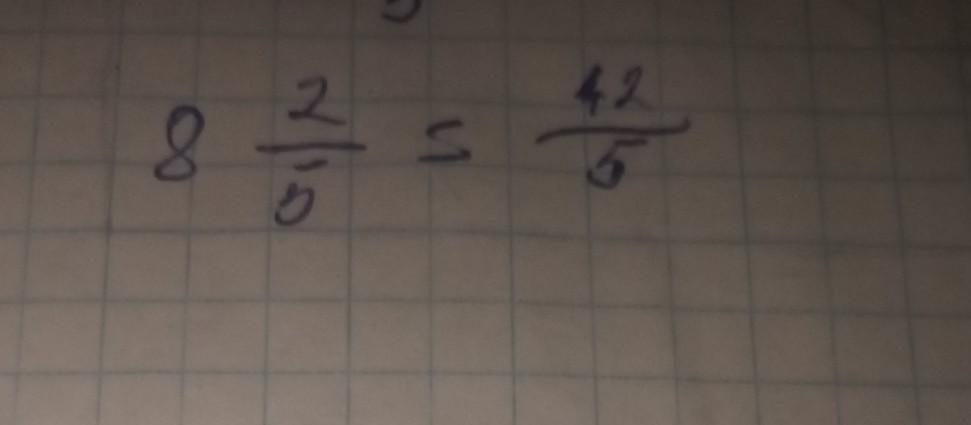 8 2/5 = 42/5